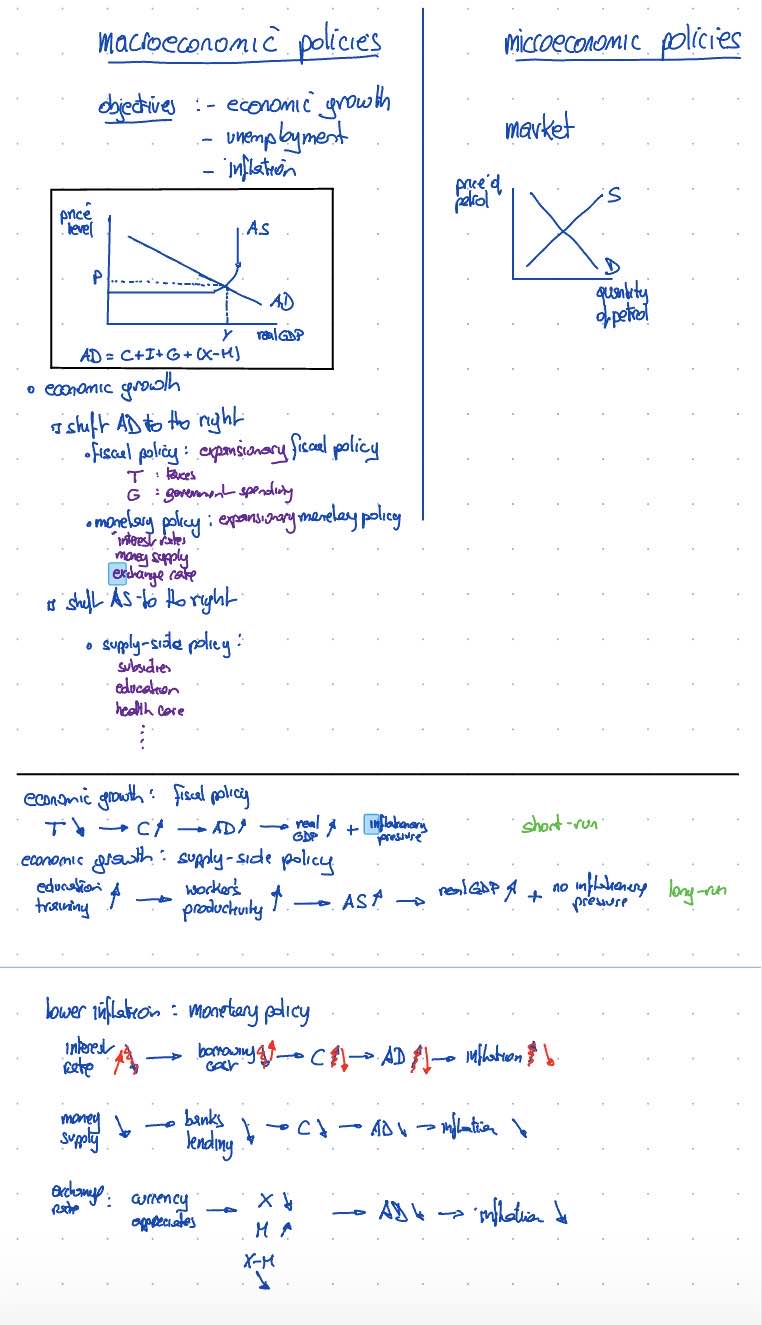 macroeconomic policies
objectives : - economic growth
- unemployment
- inflation
price level
AS
P
AD
Y
real GDP
AD = C+I+G+(X-M)
economic growth
shift AD to the right
fiscal policy : expansionary fiscal policy
T : taxes
G : government spending
monetary policy : expansionary monetary policy
interest rates
money supply
exchange rate
shift AS to the right
supply-side policy :
subsidies
education
health care
microeconomic policies
market
price of petrol
S
D
quantity of petrol
economic growth : fiscal policy
T ↘ → C↗ → AD↗ → real GDP ↗ + inflationary pressure
short-run
economic growth : supply-side policy
education training ↗ → worker's productivity ↗ → AS↗ → real GDP ↗ + no inflationary pressure
long-run
lower inflation : monetary policy
interest rate ↗ → borrowing cost ↗ → C ↘ → AD ↘ → inflation ↘
money supply ↘ → banks lending ↘ → C↘ → AD↘ → inflation ↘
exchange rate : currency appreciates → X ↘ → AD↘ → inflation ↘
M ↗
X-M
↘